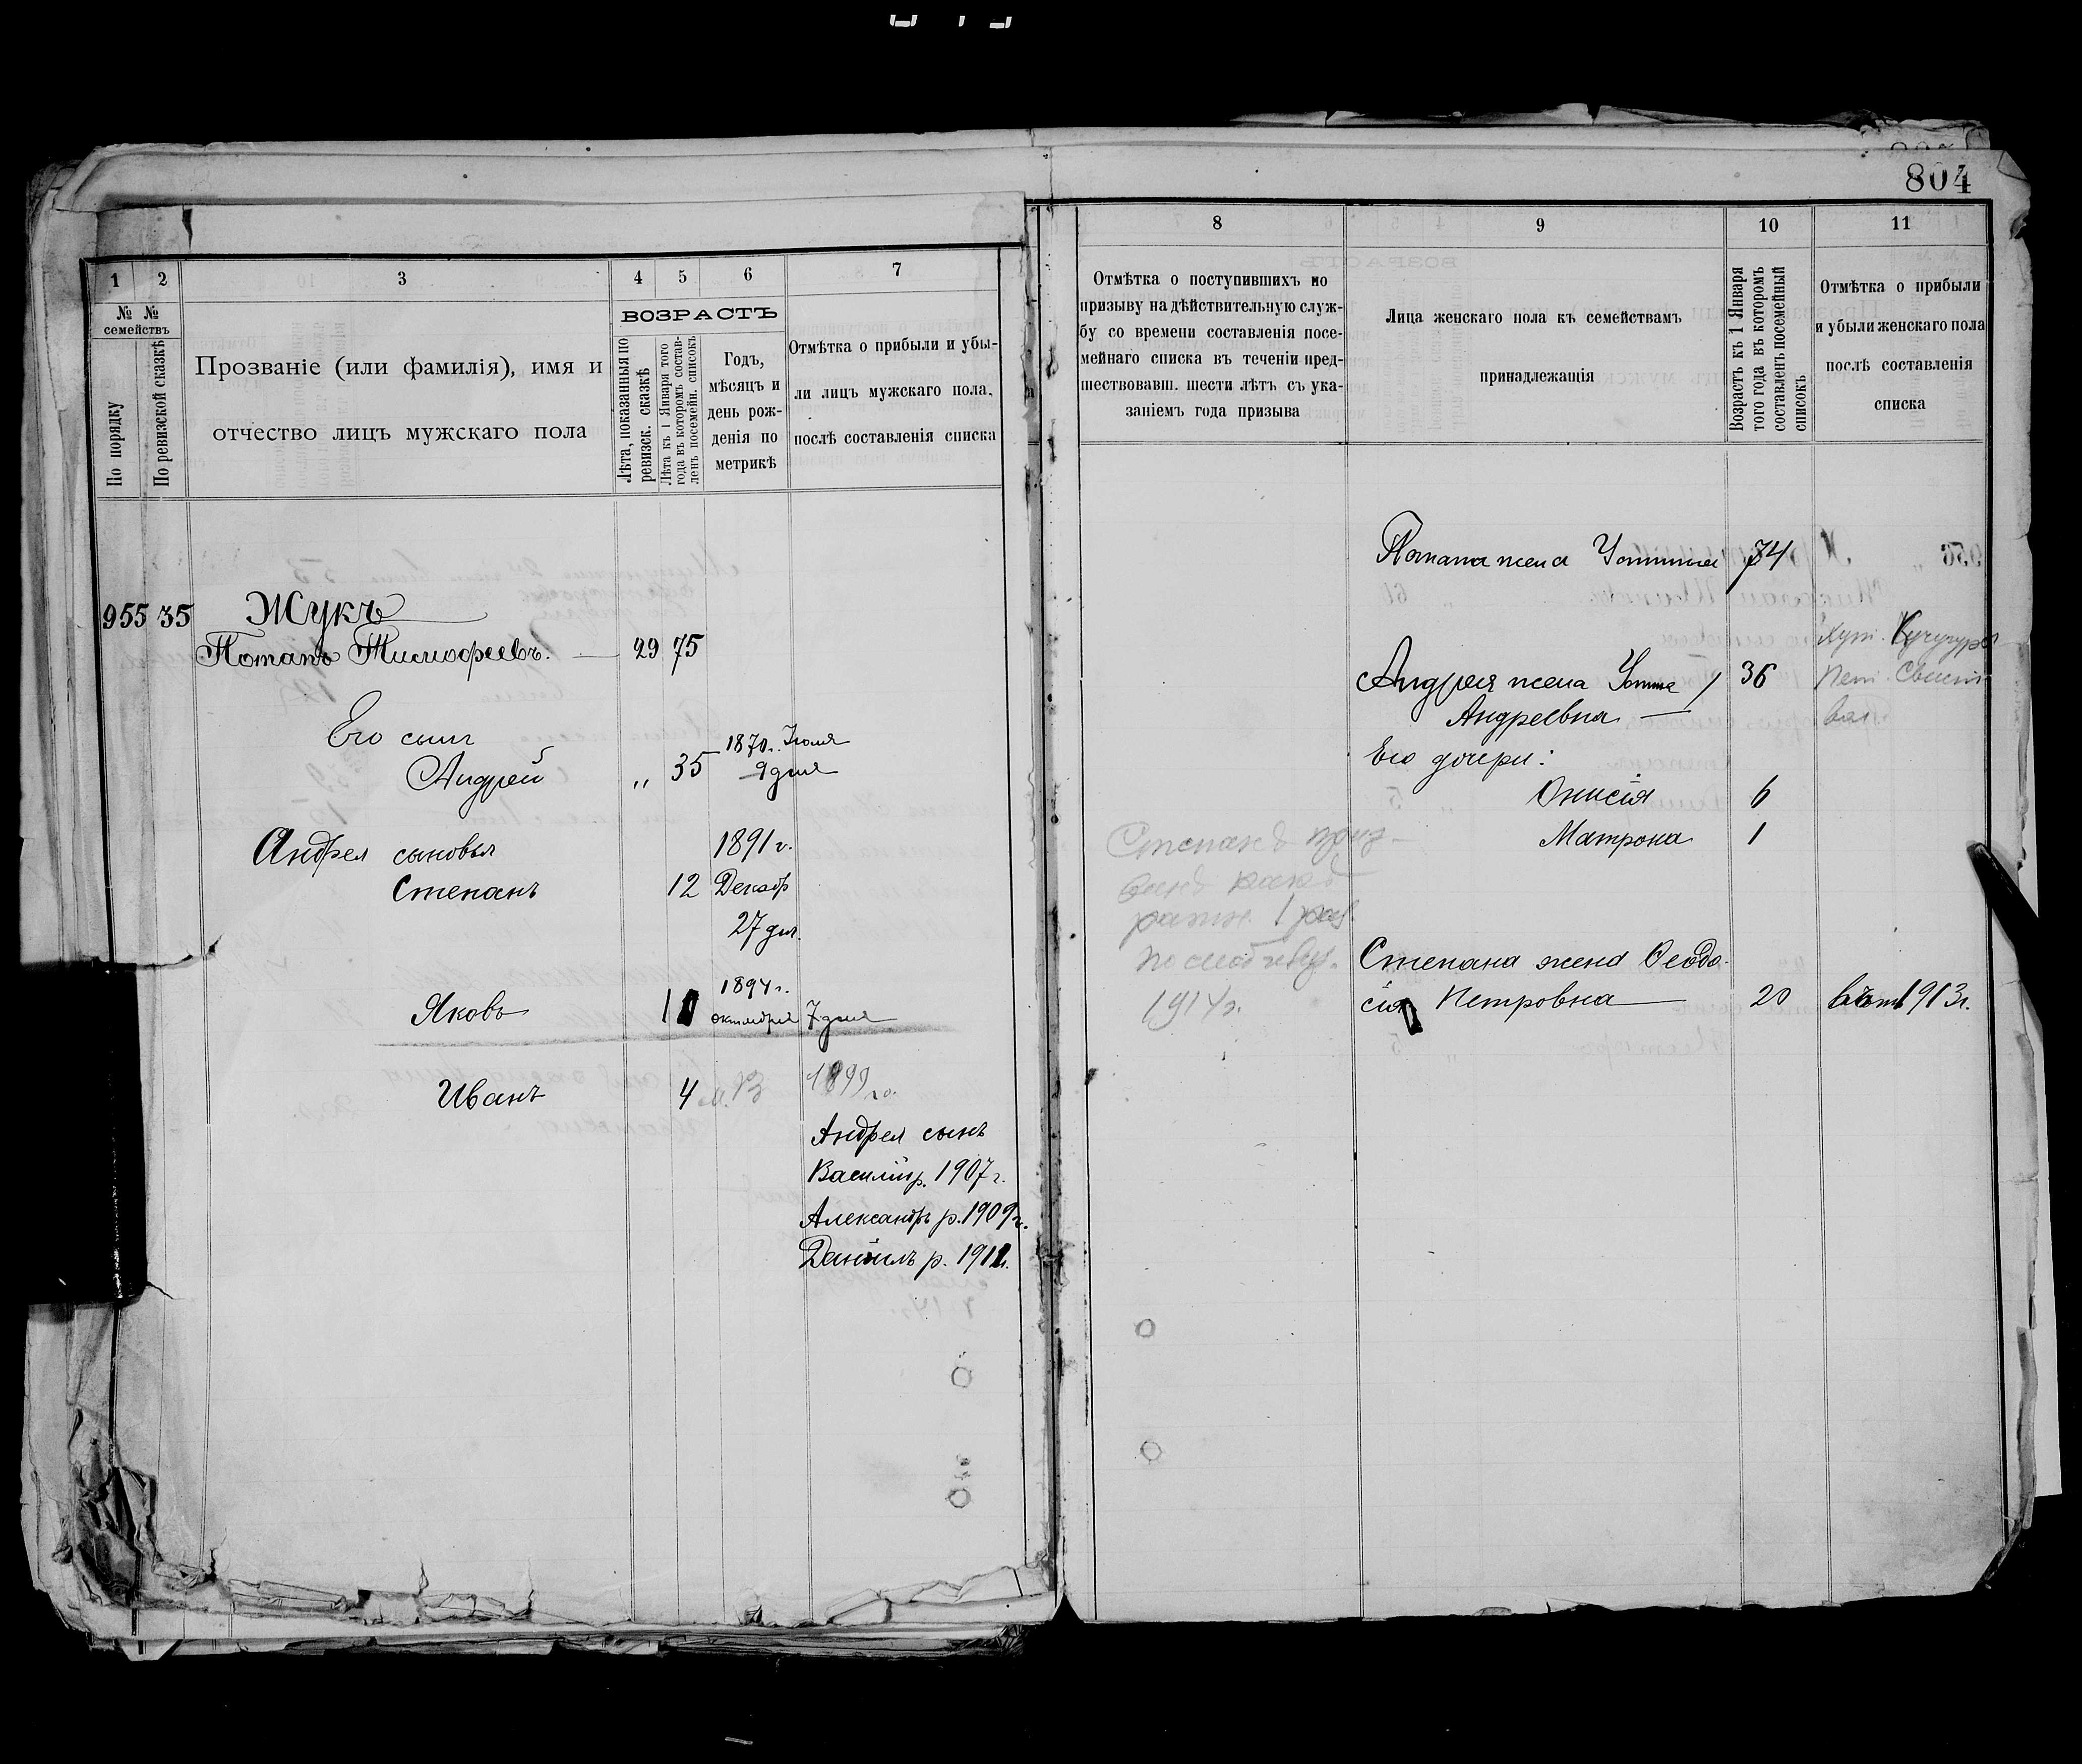 804
1 2 3 4 5 6 7
№ №
семействъ
По порядку
По ревизской сказкѣ
Прозваніе (или фамилія), имя и
отчество лицъ мужскаго пола
ВОЗРАСТЪ
Лѣта, показанныя по
ревизск. сказкѣ
Лѣта къ 1 Января того
года въ которомъ состав-
ленъ посемейн. списокъ
Годъ,
мѣсяцъ и
день рож-
денія по
метрикѣ
Отмѣтка о прибыли и убы-
ли лицъ мужскаго пола,
послѣ составленія списка
955 35 Жукъ
Потапъ Тимофеевъ. 29 75
Его сынъ
Андрей „ 35 1870г. Іюля
9 дня
Андрея сыновья 1891 г.
Степанъ 12 Декабр
27 дня.
Яковъ 10 1894 г.
октября 7 дня
Иванъ 4 1899 го.
Андрея сынъ
Василій р. 1907 г.
Александръ р. 1909 г.
Даніилъ р. 1912 г.
8 9 10 11
Отмѣтка о поступившихъ по
призыву на дѣйствительную служ-
бу со времени составленія посе-
мейнаго списка въ теченіи пред-
шествовавш. шести лѣтъ съ ука-
заніемъ года призыва
Лица женскаго пола къ семействамъ
принадлежащія
Возрастъ къ 1 Января
того года въ которомъ
составленъ посемейный
списокъ
Отмѣтка о прибыли
и убыли женскаго пола
послѣ составленія
списка
Потапа жена 74
Хут. Кучугуры
Андрея жена 36
Андреевна
Его дочери:
Онисія 6
Матрона 1
Степанъ
1914 г.
Степана жена Феодо-
сія Петровна 20 1913 г.